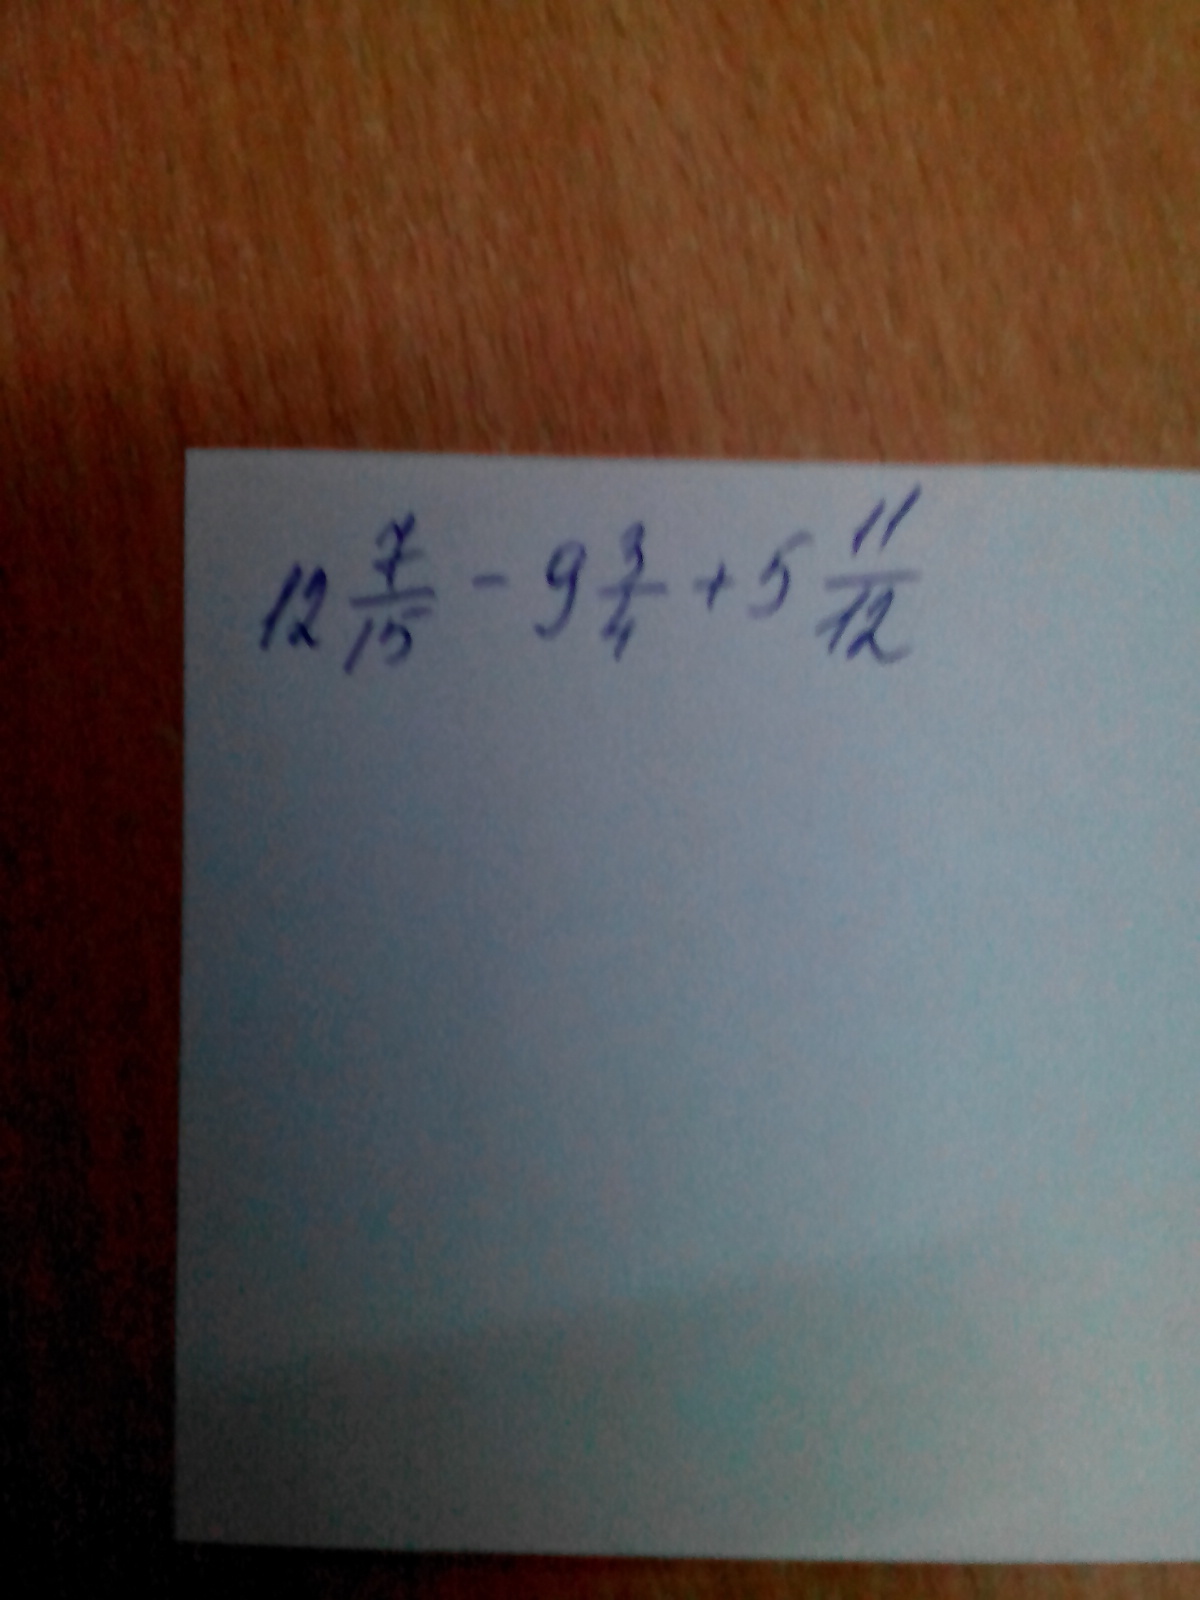 12 7/15 - 9 3/4 + 5 11/12